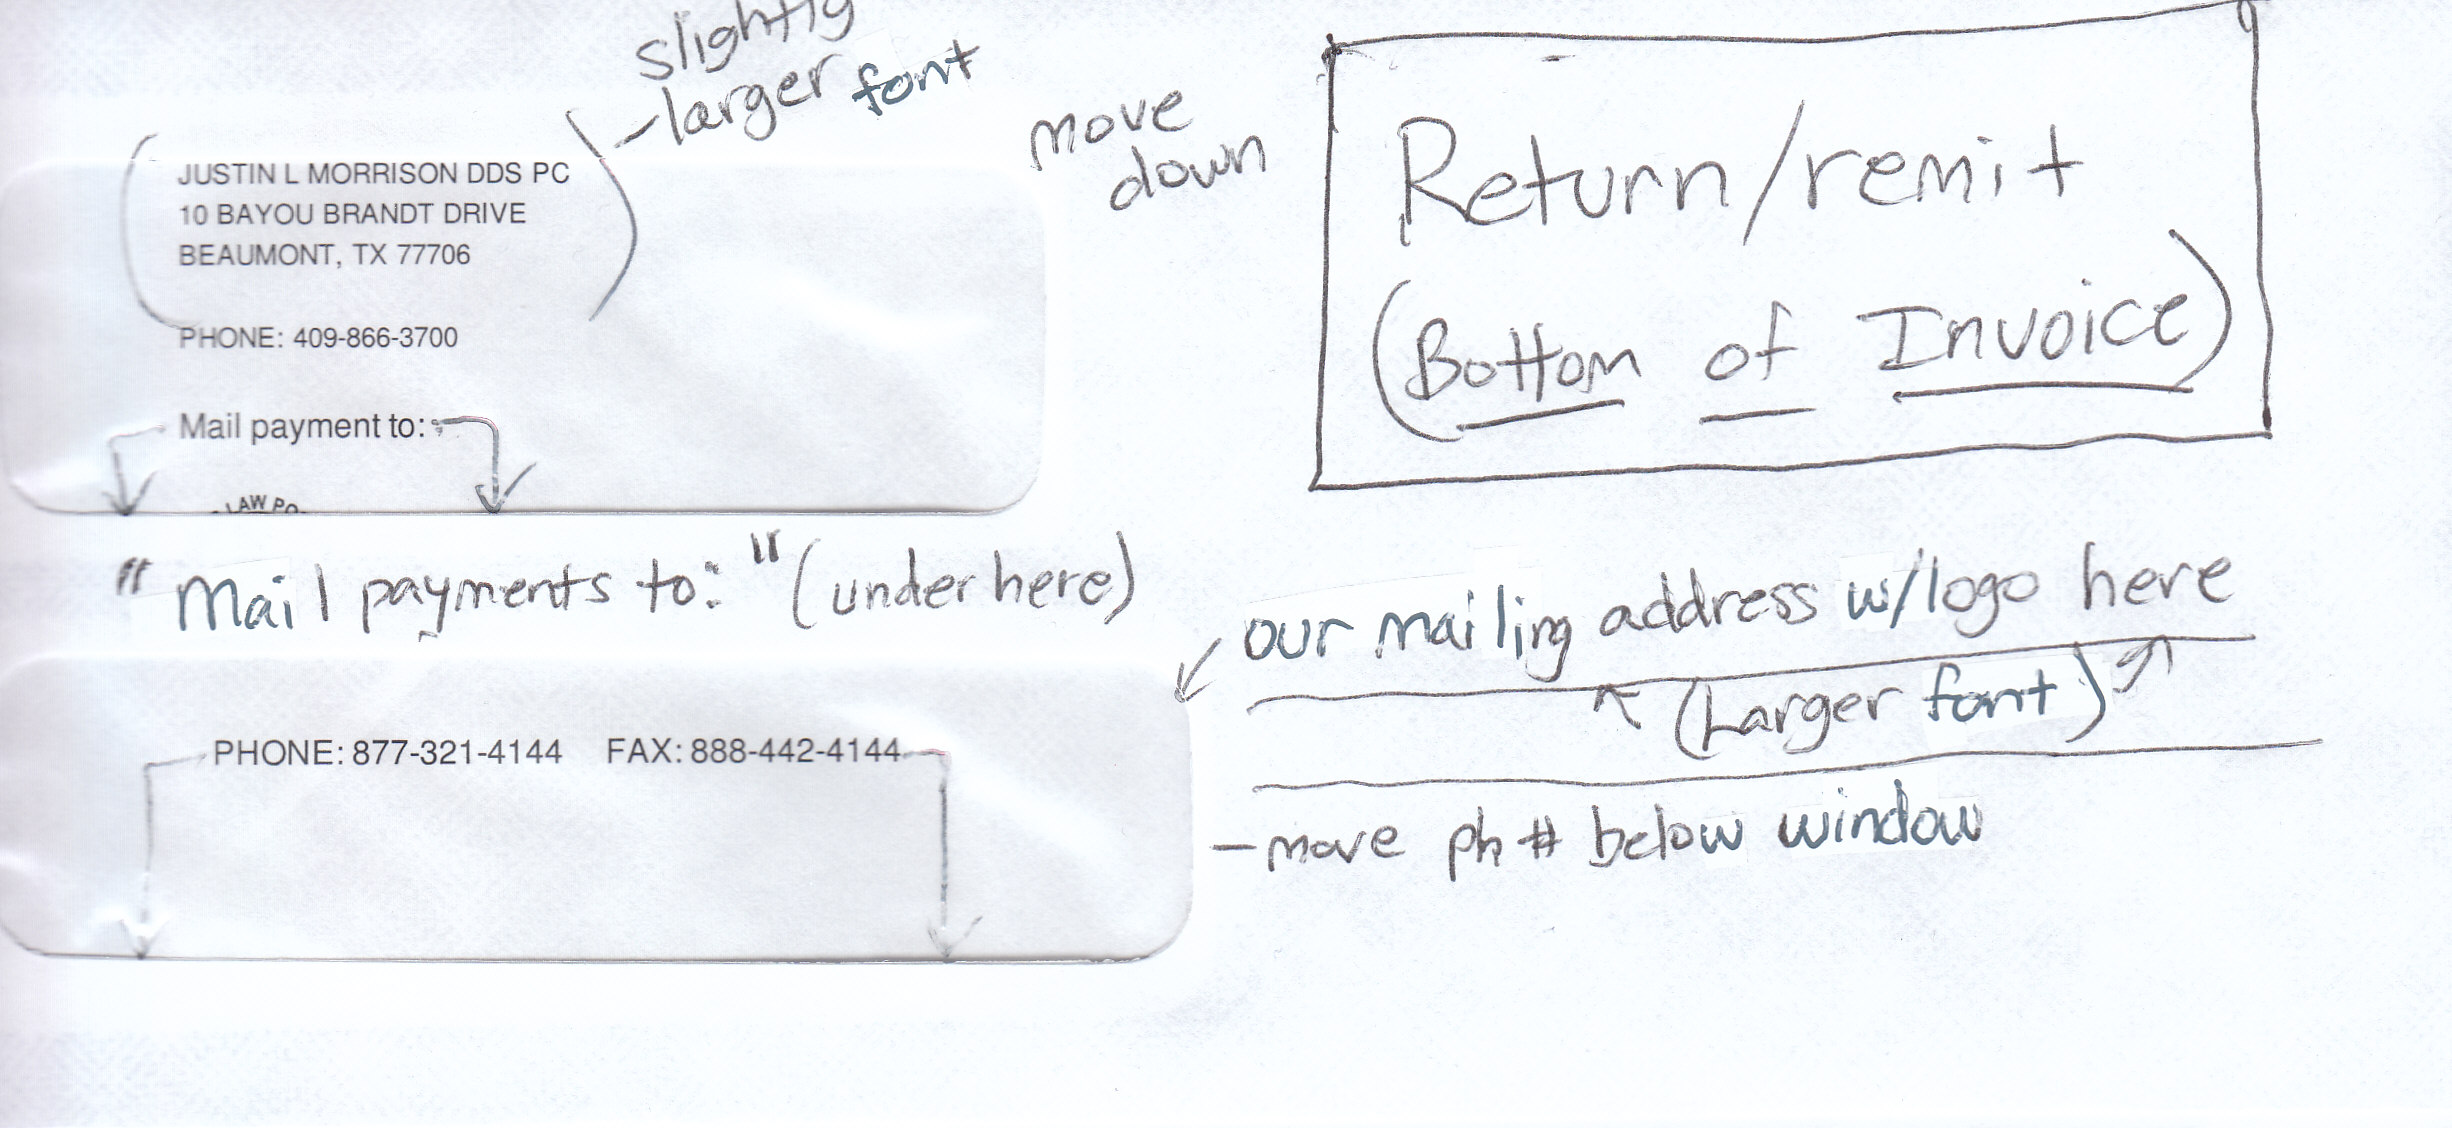 slightly
-larger font
move
down
Return/remit
(Bottom of Invoice)
JUSTIN L MORRISON DDS PC
10 BAYOU BRANDT DRIVE
BEAUMONT, TX 77706
PHONE: 409-866-3700
Mail payment to:
LAW PO
"Mail payments to:" (under here)
our mailing address w/logo here
(Larger font)
PHONE: 877-321-4144 FAX: 888-442-4144
-move ph # below window